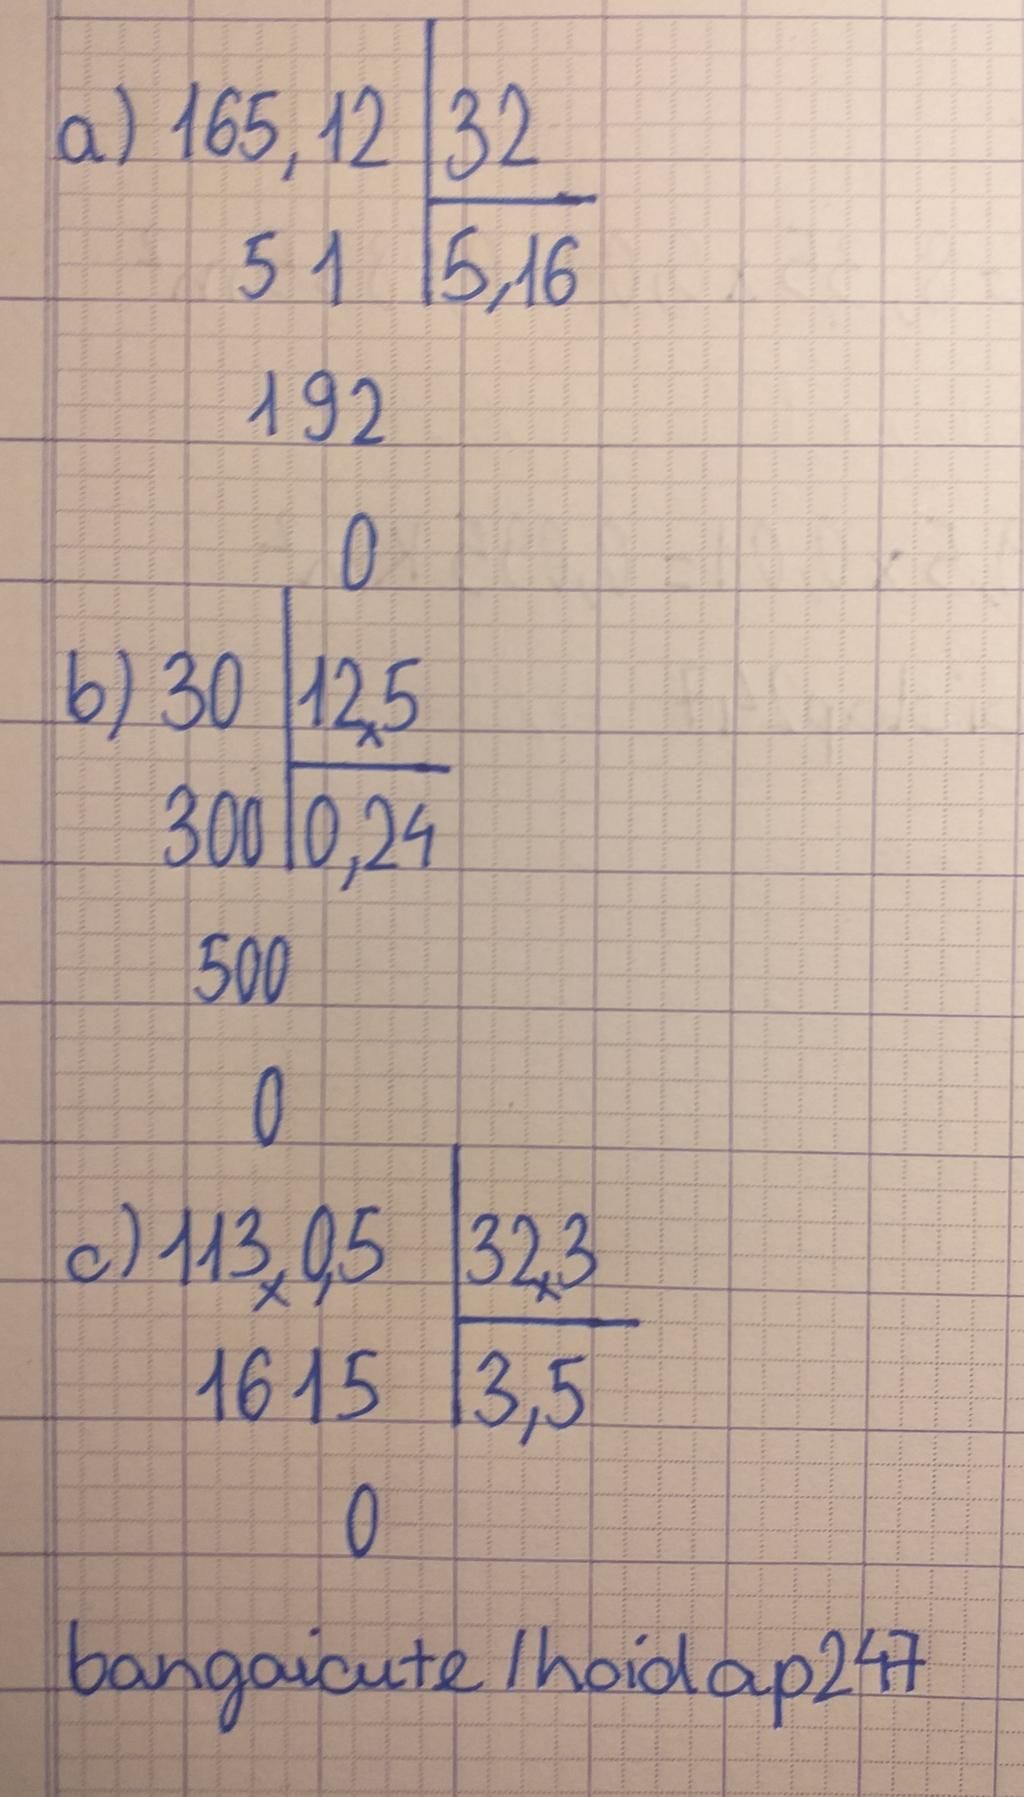 a) 165,12 32
51 5,16
192
0
b) 30 12,5
300 0,24
500
0
c) 113,0,5 32,3
1615 3,5
0
bangaicute/hoidap247